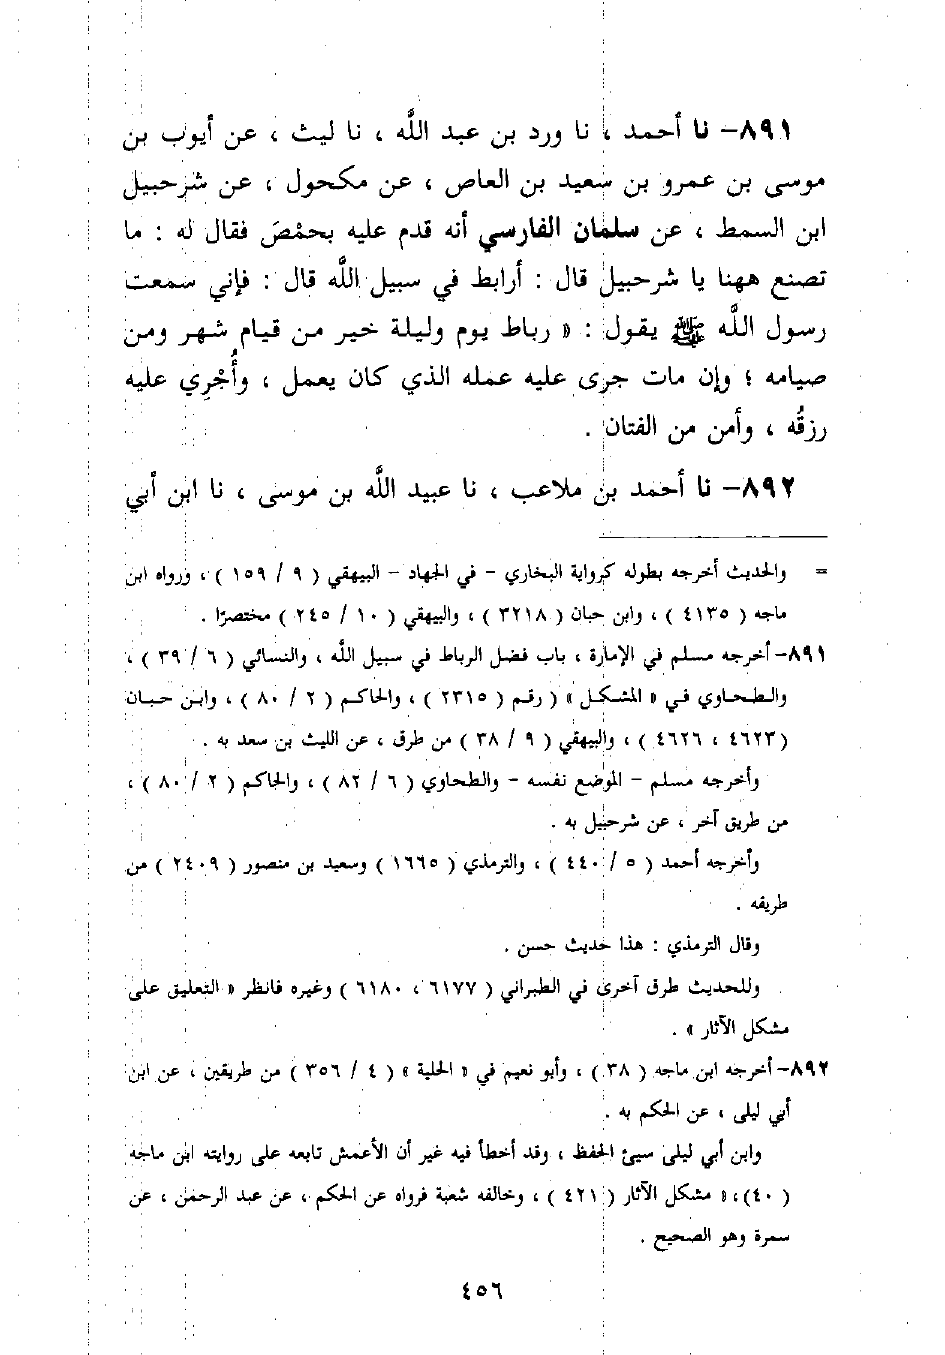 ٨٩١- نا أحمد ، نا ورد بن عبد الله ، نا ليث ، عن أيوب بن
موسى بن عمرو بن سعيد بن العاص ، عن مكحول ، عن شرحبيل
ابن السمط ، عن سلمان الفارسي أنه قدم عليه بحمْصَ فقال له : ما
تصنع ههنا يا شرحبيل قال : أرابط في سبيل الله قال : فإني سمعت
رسول الله ﷺ يقول : « رباط يوم وليلة خير من قيام شهر ومن
صيامه ؛ وإن مات جرى عليه عمله الذي كان يعمل ، وأُجْرِي عليه
رزقُه ، وأمن من الفتان .
٨٩٢- نا أحمد بن ملاعب ، نا عبيد الله بن موسى ، نا ابن أبي
= والحديث أخرجه بطوله كرواية البخاري - في الجهاد - البيهقي ( ٩ / ١٥٩ ) ، ورواه ابن
ماجه ( ٤١٣٥ ) ، وابن حبان ( ٣٢١٨ ) ، والبيهقي ( ١٠ / ٢٤٥ ) مختصرًا .
٨٩١- أخرجه مسلم في الإمارة ، باب فضل الرباط في سبيل الله ، والنسائي ( ٦ / ٣٩ ) ،
والطحاوي في « المشكل » ( رقم ( ٢٣١٥ ) ، والحاكم ( ٢ / ٨٠ ) ، وابن حبان
( ٤٦٢٣ ، ٤٦٢٦ ) ، والبيهقي ( ٩ / ٣٨ ) من طرق ، عن الليث بن سعد به .
وأخرجه مسلم - الموضع نفسه - والطحاوي ( ٦ / ٨٢ ) ، والحاكم ( ٢ / ٨٠ ) ،
من طريق آخر ، عن شرحبيل به .
وأخرجه أحمد ( ٥ / ٤٤٠ ) ، والترمذي ( ١٦٦٥ ) وسعيد بن منصور ( ٢٤٠٩ ) من
طريقه .
وقال الترمذي : هذا حديث حسن .
وللحديث طرق آخرى في الطبراني ( ٦١٧٧ ، ٦١٨٠ ) وغيره فانظر « التعليق على
مشكل الآثار » .
٨٩٢- أخرجه ابن ماجه ( ٣٨ ) ، وأبو نعيم في « الحلية » ( ٤ / ٣٥٦ ) من طريقين ، عن ابن
أبي ليلى ، عن الحكم به .
وابن أبي ليلى سيئ الحفظ ، وقد أخطأ فيه غير أن الأعمش تابعه على روايته ابن ماجه
( ٤٠) ، « مشكل الآثار ( ٤٢١ ) ، وخالفه شعبة فرواه عن الحكم ، عن عبد الرحمن ، عن
سمرة وهو الصحيح .
٤٥٦